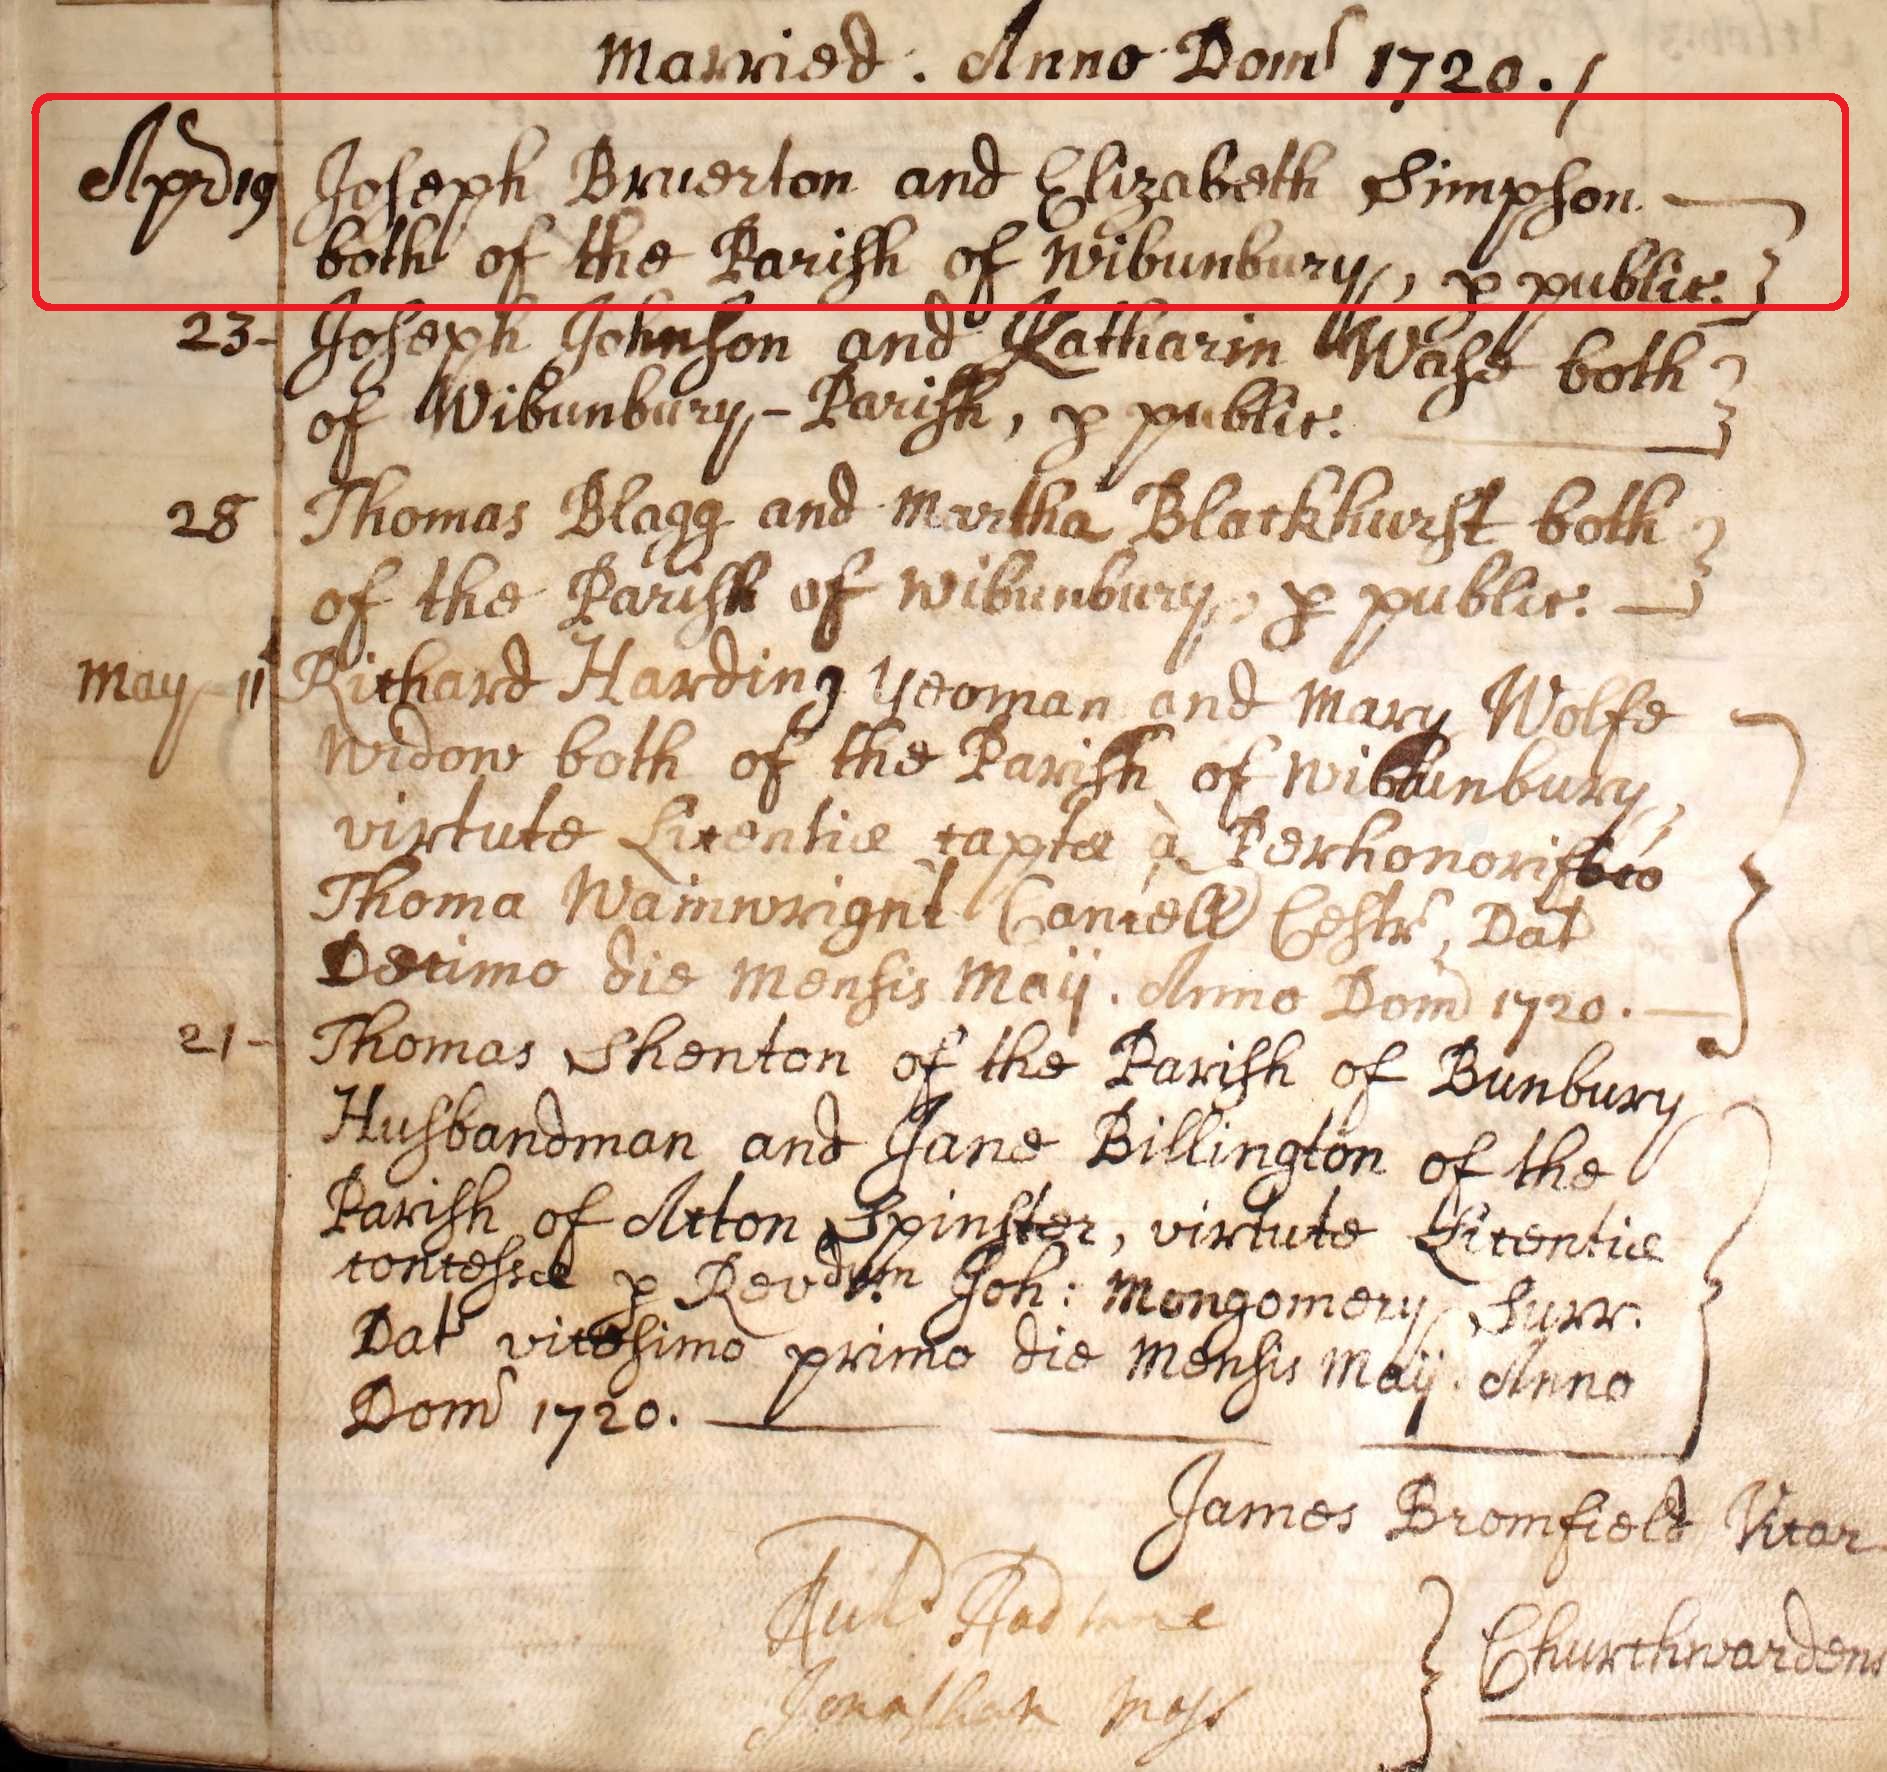 Married. Anno Dom 1720.
Apr 19 Joseph Bruerton and Elizabeth Simpson
both of the Parish of Wibunbury, p public:
23 - Joseph Johnson and Katharin Wase both
of Wibunbury - Parish, p public:
28 Thomas Blagg and Martha Blackhurst both
of the Parish of Wibunbury, p public:
May - 11 Richard Harding Yeoman and Mary Wolfe
Widow both of the Parish of Wibunbury,
virtute Licentiæ captæ à Perhonorifico
Thoma Wainwright Cancell Cestr, Dat
Decimo die Mensis Maij. Anno Dom 1720.
21 - Thomas Shenton of the Parish of Bunbury
Husbandman and Jane Billington of the
Parish of Acton Spinster, virtute Licentiæ
concessæ p Revdum Joh: Mongomery Surr.
Dat vicesimo primo die Mensis Maij. Anno
Dom 1720.
James Bromfield Vicar
Richd
Jonathan Moss
Churchwardens